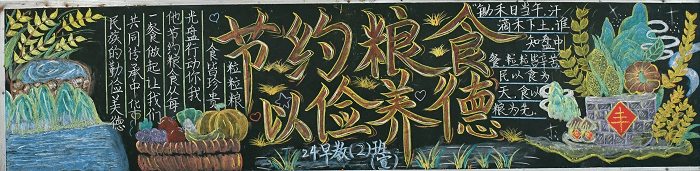 节约粮食
以俭养德
粒粒粮
食皆珍贵
光盘行动你我
他节约粮食从每
一餐做起让我们
共同传承中华
民族的勤俭美德
"锄禾日当午,汗
滴禾下土,谁
知盘中
餐,粒粒皆辛苦
民以食为
天,食以
粮为先.
丰
24早教(2)班
宣